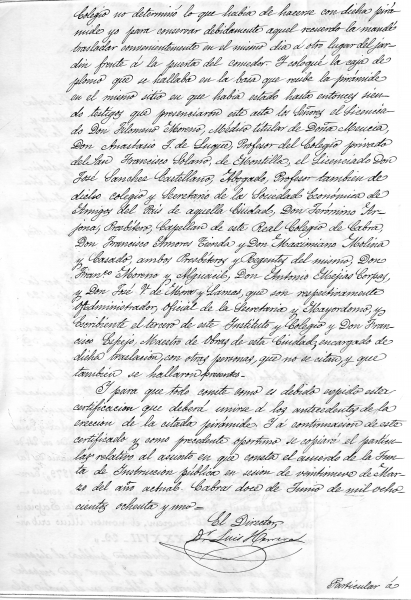 Colegio no determinó lo que habia de hacerse con dicha pirá-
mide yo para conservar debidamente aquel recuerdo la mandé
trasladar convenientemente en el mismo dia á otro lugar del jar-
din frente á la puerta del comedor. Y coloqué la caja de
plomo que se hallaba en la base que recibe la pirámide
en el mismo sitio en que habia estado hasta entonces sien-
do testigos que presenciaron este acto los Señores el Licencia-
do Don Filomeno Moreno, Médico titular de Doña Mencia,
Don Anastasio J. de Luque, Profesor del Colegio privado
de San Francisco Solano, de Montilla, el Licenciado Don
José Sanchez Castellano, Abogado, Profesor tambien de
dicho colegio y Secretario de la Sociedad Económica de
Amigos del Pais de aquella Ciudad, Don Fermino Ar-
jona, Presbitero, Capellan de este Real Colegio de Cabra,
Don Francisco Amores y Don Maximiano Molina
y Casado, ambos Presbiteros y Regentes del mismo, Don
Franco Moreno y Alguacil, Don Antonio Mejias Corpas,
y Don José V. de Mora y Lamas, que son respectivamente
Administrador, Oficial de la Secretaria y Mayordomo, y
Escribiente el tercero de este Instituto y Colegio y Don Fran-
cisco Espejo, Maestro de Obras de esta Ciudad, encargado de
dicha traslacion, con otras personas, que no se citan, y que
tambien se hallaron presentes.
Y para que todo conste como es debido espido esta
certificacion que deberá unirse á los antecedentes de la
ereccion de la citada pirámide. Y á continuacion de este
certificado y como precedente oportuno se copiará el particu-
lar relativo al asunto en que consta el acuerdo de la Jun-
ta de Instruccion pública en sesion de veintinueve de Mar-
zo del año actual. Cabra doce de Junio de mil ocho
cientos ochenta y uno.
El Director,
Dr. Luis Herrera
Particular á